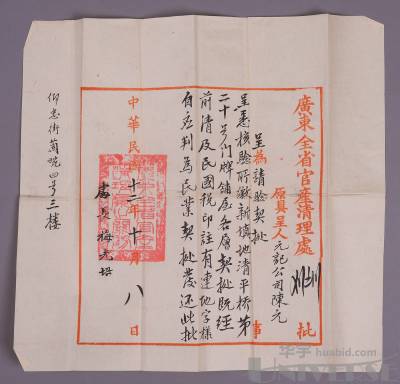 廣東全省官產清理處
批
原具呈人元記公司陳元
呈為請驗契批
事
呈悉核驗所繳新橫地清平橋第
二十号门牌鋪屋各層契批既經
前清及民國稅印註有連地字樣
自应判為民業契批發还此批
處長梅光培
中華民國十二年十月八日
仰忠街 四号三樓
华宇 huabid.com
UNIVERSE